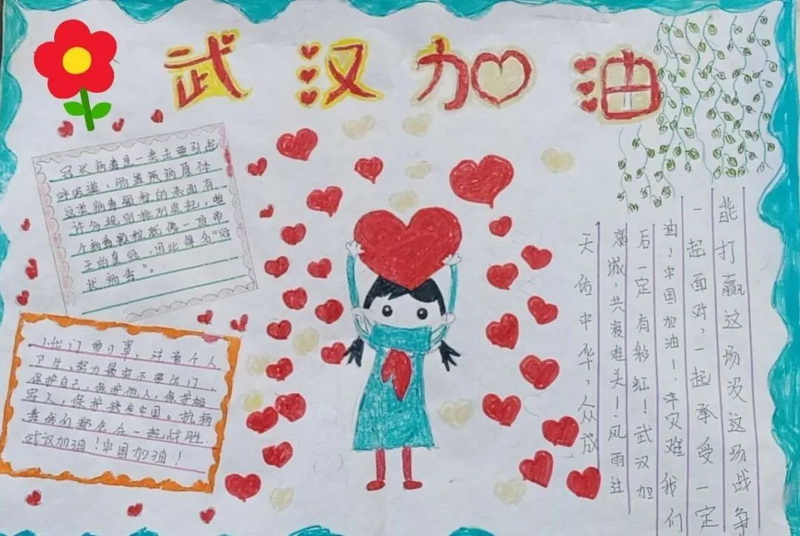 武汉加油
冠状病毒是一类主要引起
呼吸道、肠道疾病病原体
这类病毒颗粒的表面有
许多规则排列突起，整
个病毒颗粒就像一顶帝
王的皇冠，因此得名“冠
状病毒”。
1.出门带口罩，注意个人
卫生，努力不要出门
保护自己，保护他人，保护
家人，保护中国。抗病
毒我们一起战胜
武汉加油！中国加油！
天佑中华，众成
城，共渡难关！风雨过
后一定有彩虹！武汉加
油！中国加油！灾难我们
一起面对，一起承受一定
能打赢这场没这场战争